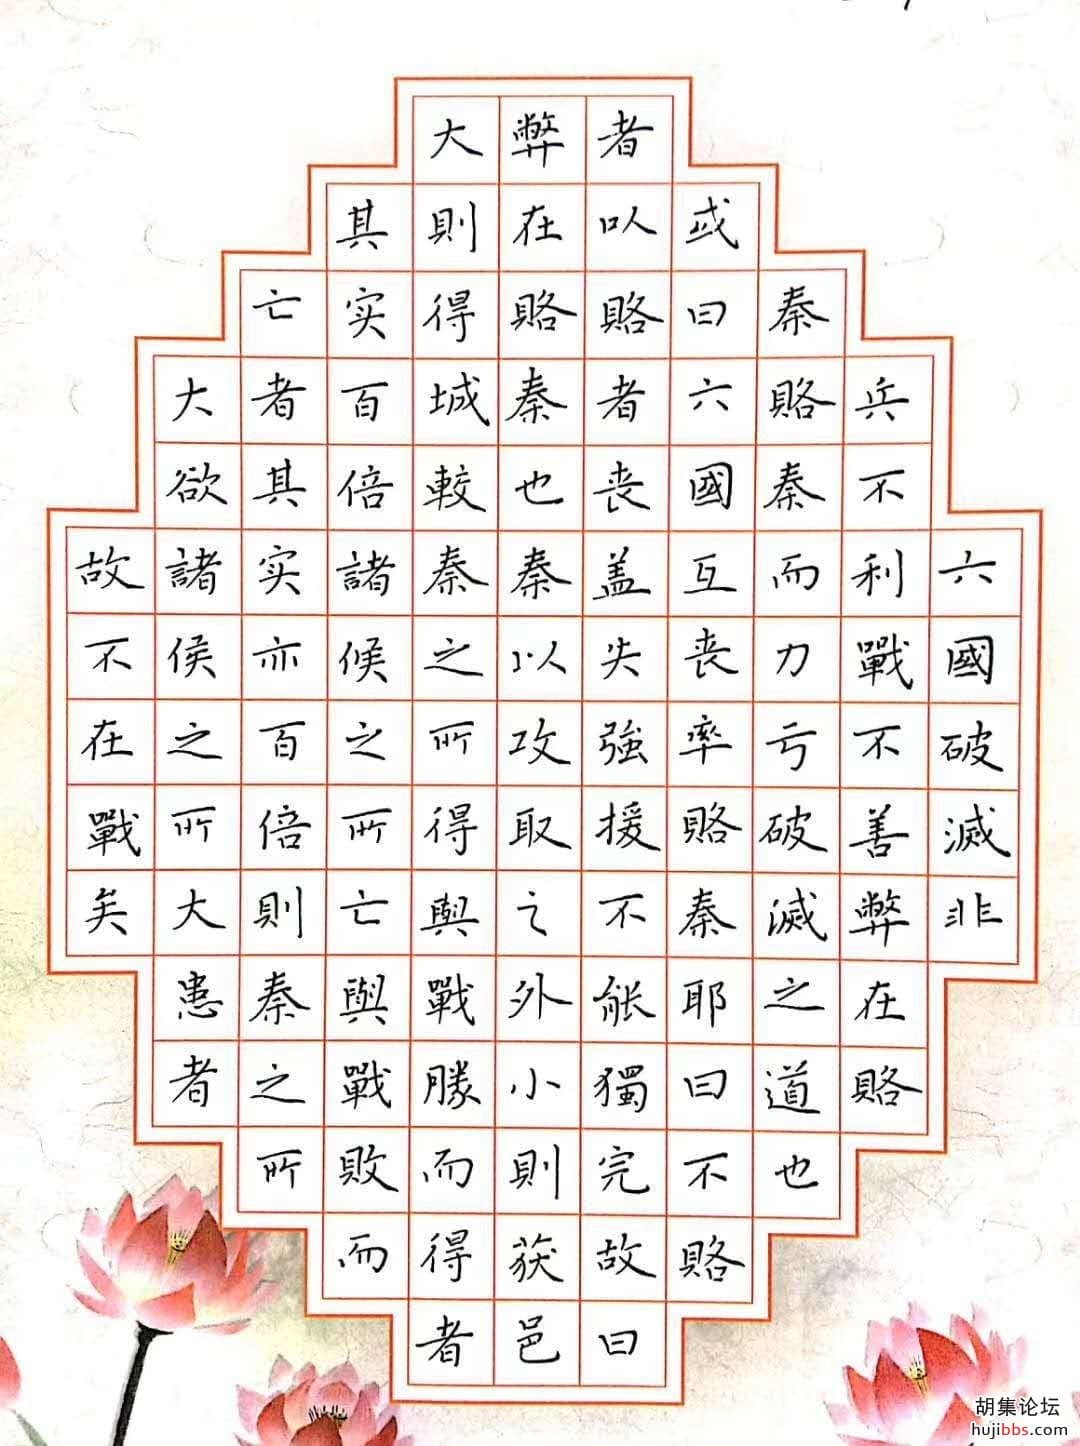 六國破滅非
兵不利戰不善弊在賂
秦賂秦而力亏破滅之道也
或曰六國互丧率賂秦耶曰不賂
者以賂者丧盖失強援不能獨完故曰
弊在賂秦也秦以攻取之外小則获邑
大則得城較秦之所得與戰勝而得者
其实百倍諸候之所亡與戰敗而
亡者其实亦百倍則秦之所
大欲諸侯之所大患者
故不在戰矣
胡集论坛
hujibbs.com